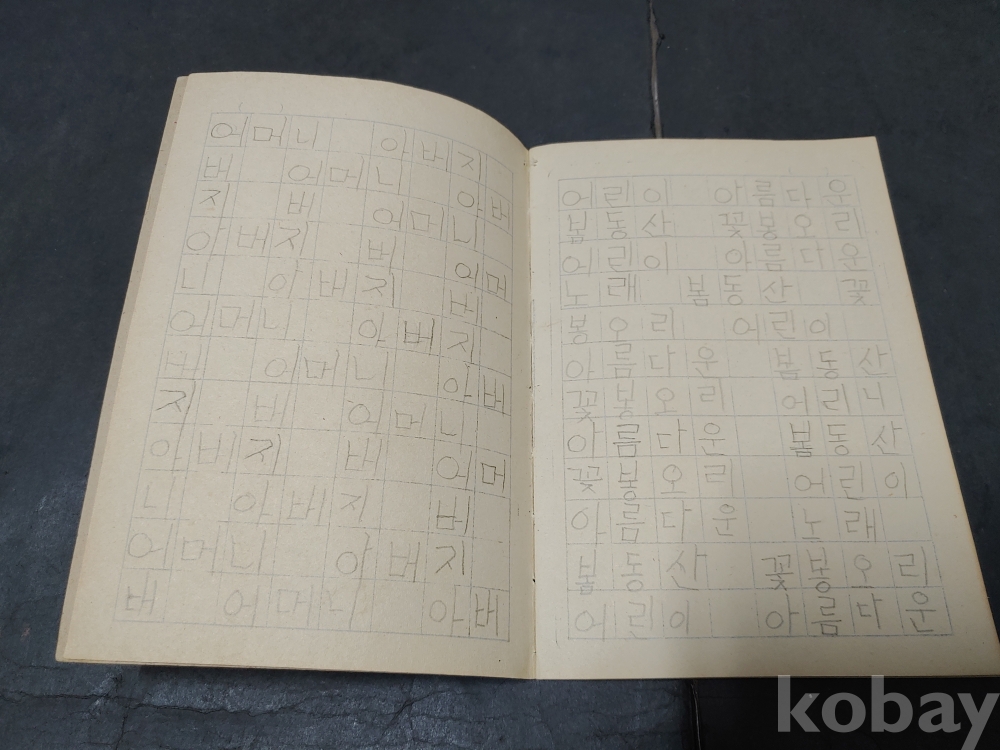 어머니 아버지
버 어머니 아버
지 버 어머니
아버지 버 어머
니 아버지 버
어머니 아버지
버 어머니 아버
지 버 어머니
아비지 버 어머
니 아버지 버
어머니 아버지
버 어머니 아버
어린이 아름다운
봄동산 꽃봉오리
어린이 아름다운
노래 봄동산 꽃
봉오리 어린이
아름다운 봄동산
꽃봉오리 어리니
아름다운 봄동산
꽃봉오리 어린이
아름다운 노래
봄동산 꽃봉오리
어린이 아름다운
kobay